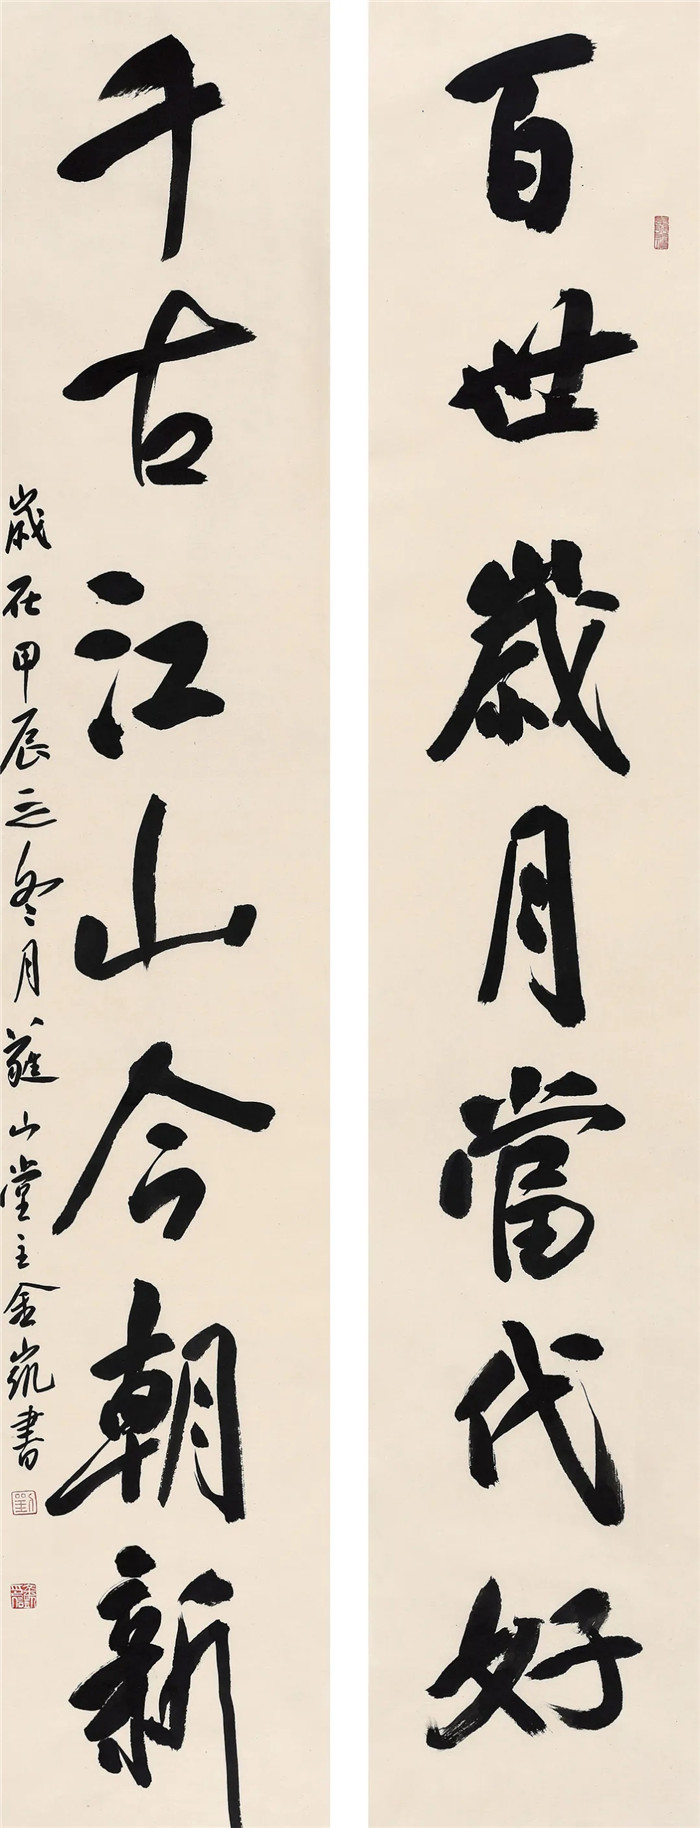 百世歲月當代好
千古江山今朝新
歲在甲辰之冬月山堂主金凯書
劉